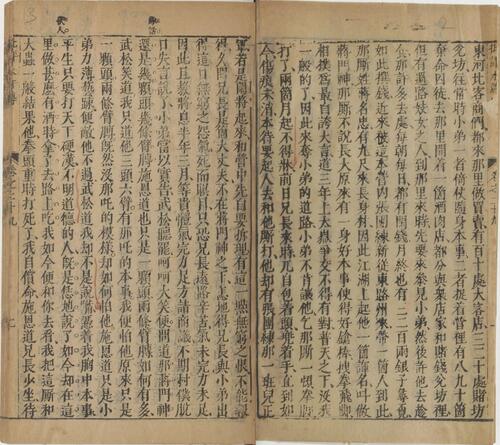 東河北客商們都來那里做買賣有百十處大客店三二十處賭坊
兌坊往常時小弟一者倚仗隨身本事二者捉着營裡有八九十箇
弃命囚徒去那里開着一箇酒肉店都分與衆店家和賭錢兌坊裡
但有過路妓女之人到那里來時先要來參見小弟然後許他去趂
食那許多去處每朝每日都有閒錢月終也有三二百兩銀子尋覔
如此撰錢近來被這本營內張團練新從東路州來帶一箇人到此
那厮姓蔣名忠有九尺來長身材因此江湖上起他一箇諢名叫做
蔣門神那厮不說長大原來有一身好本事使得好鎗棒拽拳飛脚
相撲爲最自誇大言道三年上太嶽爭交不曾有對普天之下没我
一般的了因此來奪小弟的道路小弟不肯讓他乞那厮一頓拳脚
打了兩箇月起不得牀前日兄長來時兀自包着頭兜着手直到如
今傷痕未消本待要起人去和他厮打他却有張團練那一班兒正
軍若是閙將起來和營中先自要折理有這一㸃無窮之恨不能報
得久聞兄長是箇大丈夫不在蔣門神之下怎地得兄長與小弟出
得這口無窮之怨氣死而瞑目只恐兄長遠路辛苦氣未完力未足
因此且教將息半年三月等貴體氣完力足方請商議不期村僕脫
口失言說了小弟當以實告武松聽罷呵呵大笑便問道那蔣門神
還是幾顆頭幾條臂膊施恩道也只是一顆頭兩條臂膊如何有多
武松笑道我只道他三頭六臂有那吒的本事我便怕他原來只是
一顆頭兩條臂膊既然没那吒的模樣却如何怕他施恩道只是小
弟力薄藝踈便敵他不過武松道我却不是說嘴憑着我胸中本事
平生只要打天下硬漢不明道德的人既是恁地說了如今却在這
里做甚麽有酒時拿了去路上吃我如今便和你去看我把這厮和
大蟲一般結果他拳頭重時打死了我自償命施恩道兄長少坐待